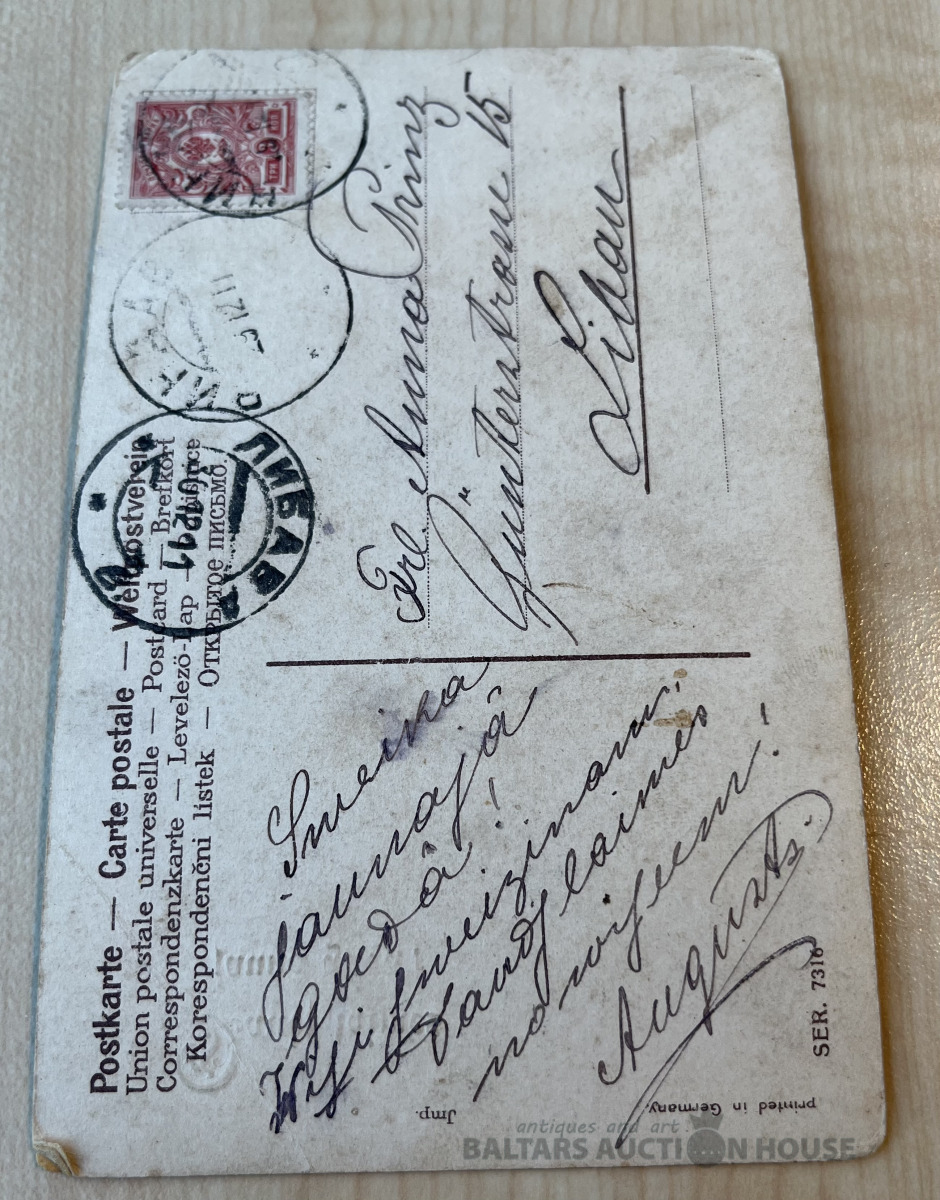 Postkarte — Carte postale — Weltpostverein
Union postale universelle — Postcard — Brefkort
Correspondenzkarte — Levelező-Lap —
Korespondenční listek — ОТКРЫТОЕ ПИСЬМО.
ЛИБАВА
5 12 11
Frl. Anna Prinz
Günterstrasse 15
Libau
Sveika
jaunajā
gadā!
Wiſi ſweizinam.
Daudz laimes
no wiſeem!
Augusts.
SER. 7316
Jmp.
printed in Germany.
antiques and art
BALTARS AUCTION HOUSE